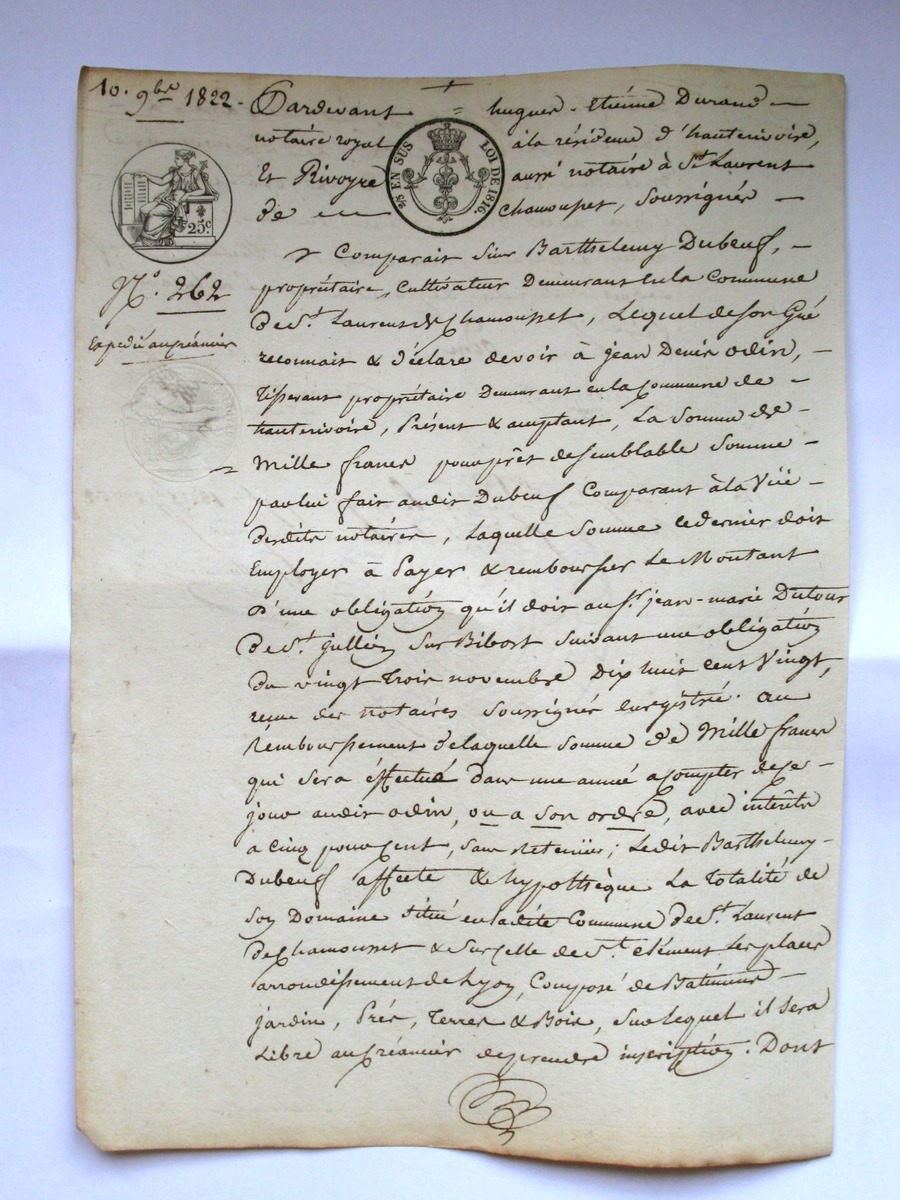 10. 9bre 1822.
Pardevant = hugues-Etiénne Durand
notaire royal à la résidence d'hauterivoire,
Et Rivoyre aussi notaire à St. Laurent
de Chamousset, Soussignés
2/5 EN SUS LOI DE 1816.
25c.
No. 262
Expedié au créancier
Comparait Sieur Barthelemy Dubeuf,
propriétaire, Cultivateur Demeurant en la Commune
de St. Laurent de Chamousset, Lequel de son Gré
reconnait & déclare devoir à jean Denis odin,
Tisserant propriétaire Demeurant en la Commune de
hauterivoire, Présent & acceptant, La Somme de
Mille francs pour prêt de semblable Somme
par lui fait audit Dubeuf Comparant à la Vüe
desdits notaires, Laquelle Somme ce dernier doit
Employer à Payer & rembourser Le Montant
d'une obligation qu'il doit au Sr. jean-marie Dutour
de St. jullien Sur Bibost Suivant une obligation
du vingt Trois novembre Dix huit cent Vingt,
reçue des notaires Soussignés Enregistré. au
Remboursement de laquelle Somme de Mille francs
qui Sera éffectué dans une année a compter de ce
jour audit odin, ou a son ordre, avec intérêts
a Cinq pour Cent, sans retenüe; Ledit Barthelemy
Dubeuf affecte & hypothèque La Totalité de
Son Domaine Situé en ladite Commune de St. Laurent
de Chamousset & Sur Celle de St. Clément Les places
arrondissement de Lyon, Composé de Batiments
jardin, Prés, Terres & Bois, Sur Lequel il sera
Libre au Créancier de prendre inscription. Dont